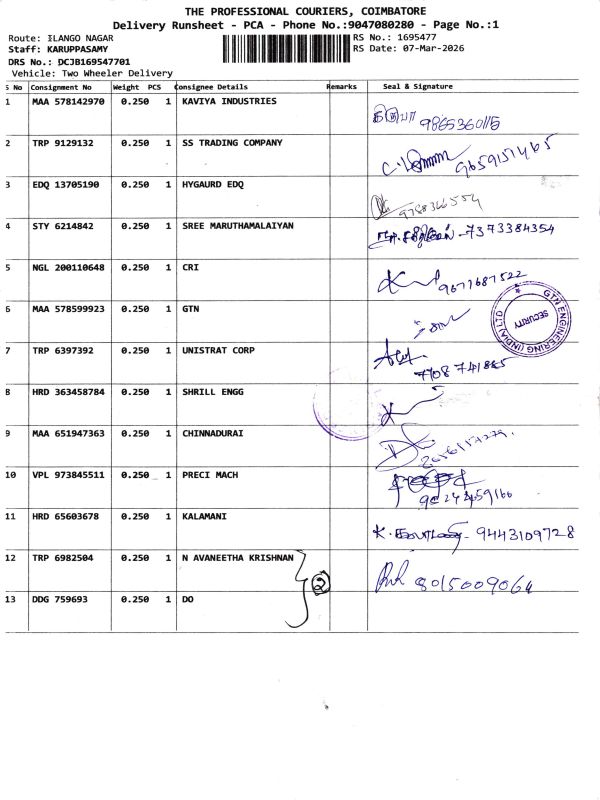 THE PROFESSIONAL COURIERS, COIMBATORE
Delivery Runsheet - PCA - Phone No.:9047080280 - Page No.:1
Route: ILANGO NAGAR
RS No.: 1695477
Staff: KARUPPASAMY
RS Date: 07-Mar-2026
DRS No.: DCJB169547701
Vehicle: Two Wheeler Delivery
S No Consignment No Weight PCS Consignee Details Remarks Seal & Signature
1 MAA 578142970 0.250 1 KAVIYA INDUSTRIES
2 TRP 9129132 0.250 1 SS TRADING COMPANY
9659151465
3 EDQ 13705190 0.250 1 HYGAURD EDQ
9788366554
4 STY 6214842 0.250 1 SREE MARUTHAMALAIYAN
7373384354
5 NGL 200110648 0.250 1 CRI
9677687522
6 MAA 578599923 0.250 1 GTN
GTN ENGINEERING (INDIA) LTD
SECURITY
7 TRP 6397392 0.250 1 UNISTRAT CORP
7708741885
8 HRD 363458784 0.250 1 SHRILL ENGG
9 MAA 651947363 0.250 1 CHINNADURAI
10 VPL 973845511 0.250 1 PRECI MACH
9024459160
11 HRD 65603678 0.250 1 KALAMANI
9443109728
12 TRP 6982504 0.250 1 N AVANEETHA KRISHNAN
2
8015009064
13 DDG 759693 0.250 1 DO